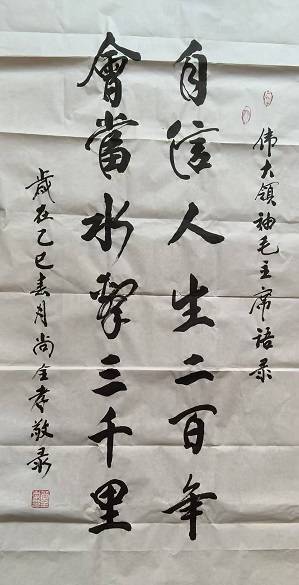 伟大领袖毛主席语录
自信人生二百年
會當水擊三千里
歲在乙巳春月尚全孝敬录